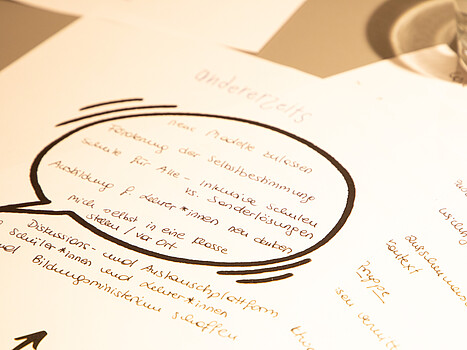 andererseits
neue Modelle zulassen
Förderung der Selbstbestimmung
Schule für Alle - inklusive Schulen
vs. Sonderlösungen
Ausbildung f. Lehrer*innen neu denken
mich selbst in eine Klasse
stellen / vor Ort
Diskussions- und Austauschplattform
Schüler*innen und Lehrer*innen
und Bildungsministerium schaffen
Gruppe
Kontext